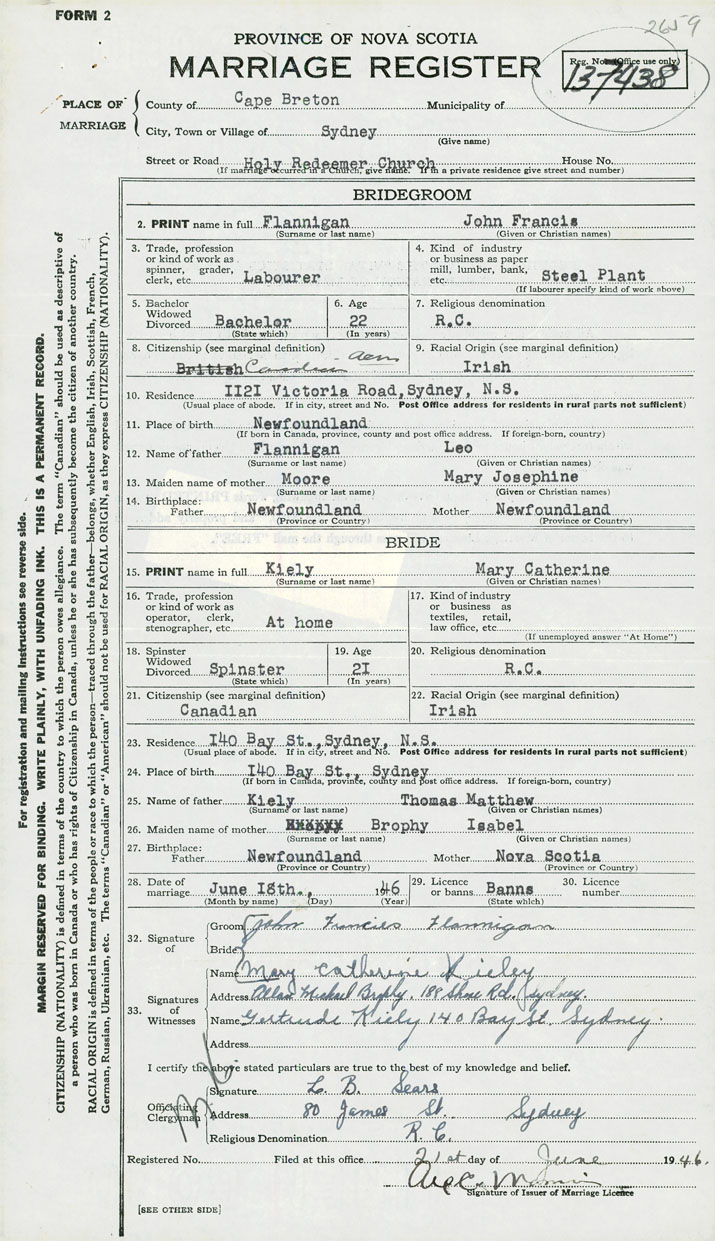 FORM 2
2659
PROVINCE OF NOVA SCOTIA
MARRIAGE REGISTER
Reg. No. (Office use only)
137438
PLACE OF MARRIAGE
County of Cape Breton Municipality of
City, Town or Village of Sydney
(Give name)
Street or Road Holy Redeemer Church House No.
(If marriage occurred in a Church, give name. If in a private residence give street and number)
BRIDEGROOM
2. PRINT name in full Flannigan John Francis
(Surname or last name) (Given or Christian names)
3. Trade, profession or kind of work as spinner, grader, clerk, etc. Labourer
4. Kind of industry or business as paper mill, lumber, bank, etc. Steel Plant
(If labourer specify kind of work above)
5. Bachelor Widowed Divorced Bachelor
(State which)
6. Age 22
(In years)
7. Religious denomination
R.C.
8. Citizenship (see marginal definition)
British Canadian
9. Racial Origin (see marginal definition)
Irish
10. Residence II2I Victoria Road, Sydney, N.S.
(Usual place of abode. If in city, street and No. Post Office address for residents in rural parts not sufficient)
11. Place of birth Newfoundland
(If born in Canada, province, county and post office address. If foreign-born, country)
12. Name of father Flannigan Leo
(Surname or last name) (Given or Christian names)
13. Maiden name of mother Moore Mary Josephine
(Surname or last name) (Given or Christian names)
14. Birthplace: Father Newfoundland Mother Newfoundland
(Province or Country) (Province or Country)
BRIDE
15. PRINT name in full Kiely Mary Catherine
(Surname or last name) (Given or Christian names)
16. Trade, profession or kind of work as operator, clerk, stenographer, etc. At home
17. Kind of industry or business as textiles, retail, law office, etc.
(If unemployed answer "At Home")
18. Spinster Widowed Divorced Spinster
(State which)
19. Age 2I
(In years)
20. Religious denomination
R.C.
21. Citizenship (see marginal definition)
Canadian
22. Racial Origin (see marginal definition)
Irish
23. Residence I40 Bay St., Sydney, N.S.
(Usual place of abode. If in city, street and No. Post Office address for residents in rural parts not sufficient)
24. Place of birth I40 Bay St., Sydney
(If born in Canada, province, county and post office address. If foreign-born, country)
25. Name of father Kiely Thomas Matthew
(Surname or last name) (Given or Christian names)
26. Maiden name of mother Brophy Isabel
(Surname or last name) (Given or Christian names)
27. Birthplace: Father Newfoundland Mother Nova Scotia
(Province or Country) (Province or Country)
28. Date of marriage June I8th., 1946
(Month by name) (Day) (Year)
29. Licence or banns Banns
(State which)
30. Licence number
32. Signature of
Groom John Francies Flannigan
Bride
33. Signatures of Witnesses
Name Mary Catherine Kieley
Address Allan Michael Brophy. 188 Shore Rd. Sydney.
Name Gertrude Kiely 140 Bay St. Sydney.
Address
I certify the above stated particulars are true to the best of my knowledge and belief.
Officiating Clergyman
Signature L. B. Sears
Address 80 James St. Sydney
Religious Denomination R. C.
Registered No. Filed at this office 21st day of June 1946.
Signature of Issuer of Marriage Licence
[SEE OTHER SIDE]
For registration and mailing instructions see reverse side.
MARGIN RESERVED FOR BINDING. WRITE PLAINLY, WITH UNFADING INK. THIS IS A PERMANENT RECORD.
CITIZENSHIP (NATIONALITY) is defined in terms of the country to which the person owes allegiance. The term "Canadian" should be used as descriptive of
a person who was born in Canada or who has rights of Citizenship in Canada, unless he or she has subsequently become the citizen of another country.
RACIAL ORIGIN is defined in terms of the people or race to which the person—traced through the father—belongs, whether English, Irish, Scottish, French,
German, Russian, Ukrainian, etc. The terms "Canadian" or "American" should not be used for RACIAL ORIGIN, as they express CITIZENSHIP (NATIONALITY).